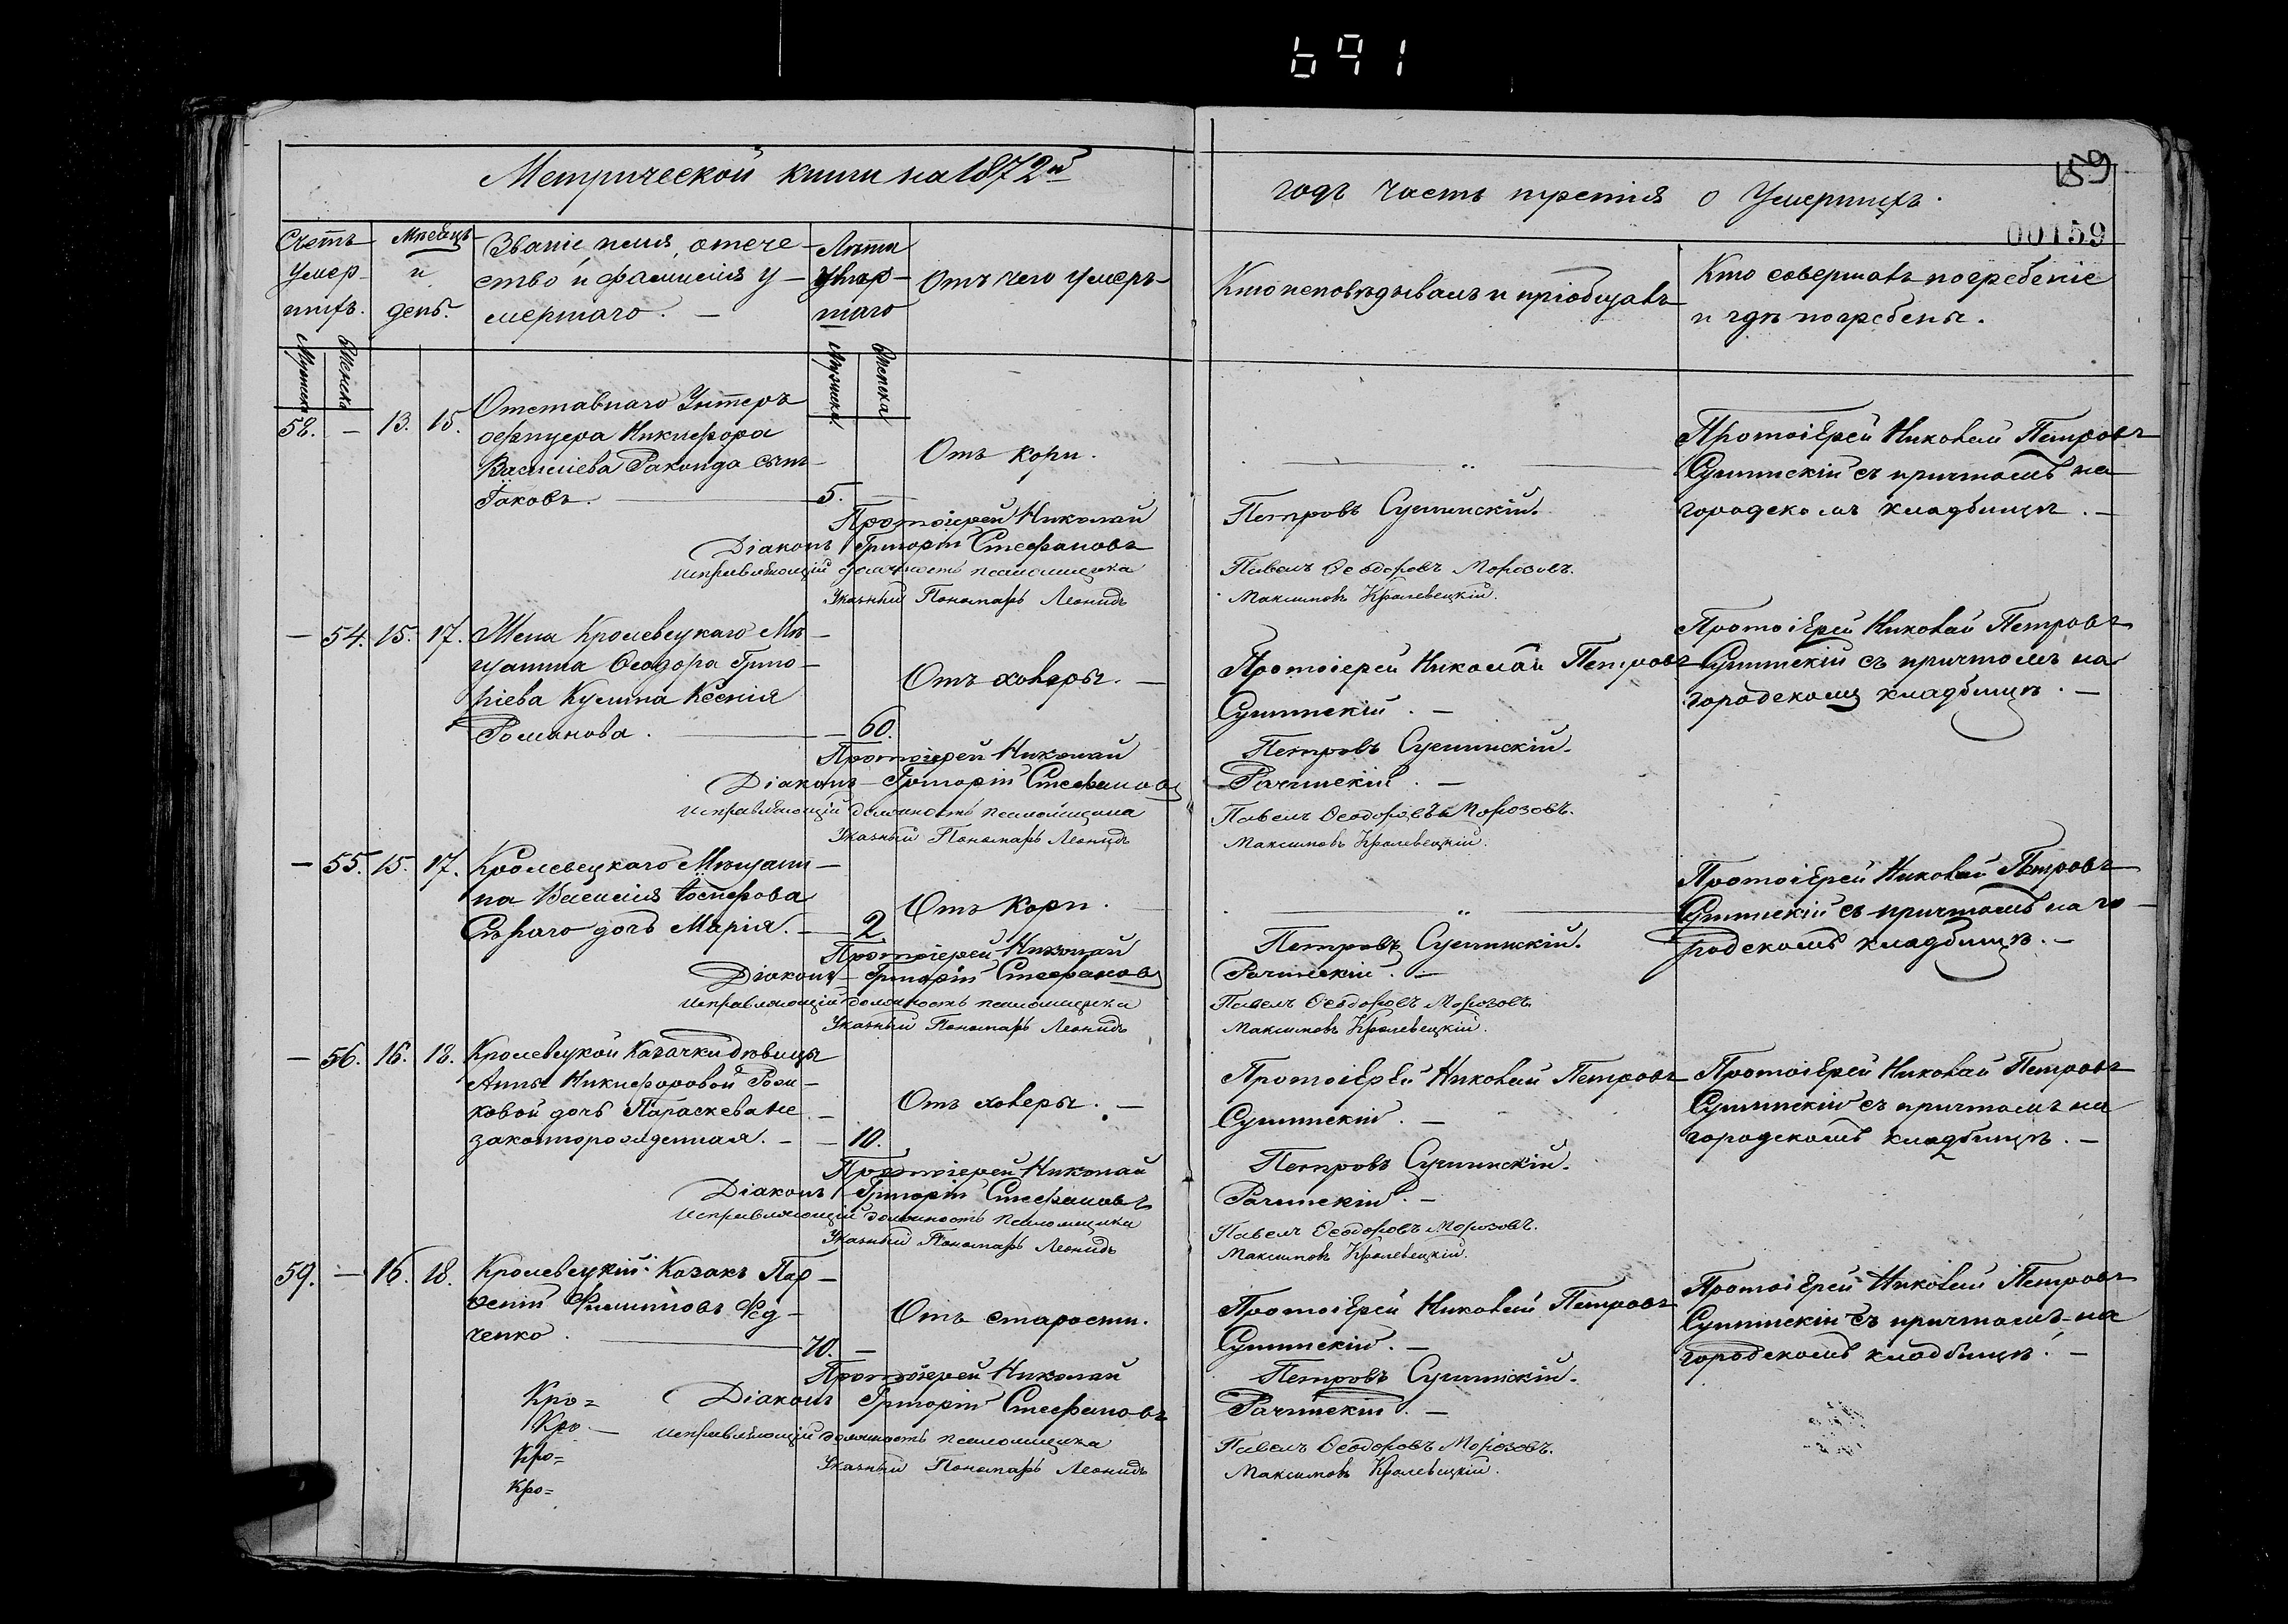 691
159
00159
Метрической книги на 1872й
годъ часть третія о Умершихъ.
Счетъ умер-
шихъ.
Мужеска
Женска
Мѣсяцъ
и
день.
Званіе имя, отече-
ство и фамилія у-
мершаго. —
Лѣта
умер-
шаго
Мужеска
Женска
Отъ чего умеръ
Кто исповѣдывалъ и пріобщалъ
Кто совершалъ погребеніе
и гдѣ погребены.
58. — 13. 15.
Отставнаго Унтеръ
офицера Никифора
Василіева сынъ
Іаковъ. — 5. —
Отъ кори.
— „ —
Протоіерей Николай Петровъ
Сушинскій съ причтомъ на
городскомъ кладбищѣ. —
Протоіерей Николай Петровъ Сушинскій.
Діаконъ Григорій Стефановъ
Исправляющій должность псаломщика Павелъ Ѳеодоровъ Морозовъ.
Указный Пономарь Леонидъ Максимовъ Кролевецкій.
— 54. 15. 17.
Жена Кролевецкаго Мѣ-
щанина Ѳеодора Григо-
ріева Ксенія
Романова. — — 60.
Отъ холеры. —
Протоіерей Николай Петровъ
Сушинскій. —
Протоіерей Николай Петровъ
Сушинскій съ причтомъ на
городскомъ кладбищѣ. —
Протоіерей Николай Петровъ Сушинскій.
Діаконъ Григорій Стефановъ Рачинскій. —
Исправляющій должность псаломщика Павелъ Ѳеодоровъ Морозовъ.
Указный Пономарь Леонидъ Максимовъ Кролевецкій.
— 55. 15. 17.
Кролевецкаго Мѣщани-
на Василія Іосифова
Сѣраго дочь Марія. — — 2
Отъ кори.
— „ —
Протоіерей Николай Петровъ
Сушинскій съ причтомъ на го-
родскомъ кладбищѣ. —
Протоіерей Николай Петровъ Сушинскій.
Діаконъ Григорій Стефановъ Рачинскій. —
Исправляющій должность псаломщика Павелъ Ѳеодоровъ Морозовъ.
Указный Пономарь Леонидъ Максимовъ Кролевецкій.
— 56. 16. 18.
Кролевецкой Казачки дѣвицы
Анны Никифоровой
дочь Параскева не
законнорожденная. — — 10.
Отъ холеры. —
Протоіерей Николай Петровъ
Сушинскій. —
Протоіерей Николай Петровъ
Сушинскій съ причтомъ на
городскомъ кладбищѣ. —
Протоіерей Николай Петровъ Сушинскій.
Діаконъ Григорій Стефановъ Рачинскій. —
Исправляющій должность псаломщика Павелъ Ѳеодоровъ Морозовъ.
Указный Пономарь Леонидъ Максимовъ Кролевецкій.
59. — 16. 18.
Кролевецкій Казакъ Пар-
ѳеній Филиповъ Фед-
ченко. — 70. —
Отъ старости.
Протоіерей Николай Петровъ
Сушинскій. —
Протоіерей Николай Петровъ
Сушинскій съ причтомъ на
городскомъ кладбищѣ. —
Протоіерей Николай Петровъ Сушинскій.
Кро= Діаконъ Григорій Стефановъ Рачинскій. —
Кро— Исправляющій должность псаломщика Павелъ Ѳеодоровъ Морозовъ.
Кро= Указный Пономарь Леонидъ Максимовъ Кролевецкій.
Кро=